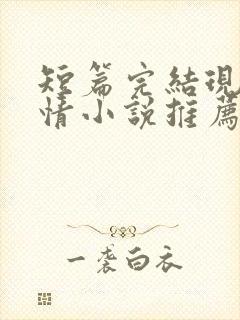 短篇完結現
情小說推薦
一袭白衣